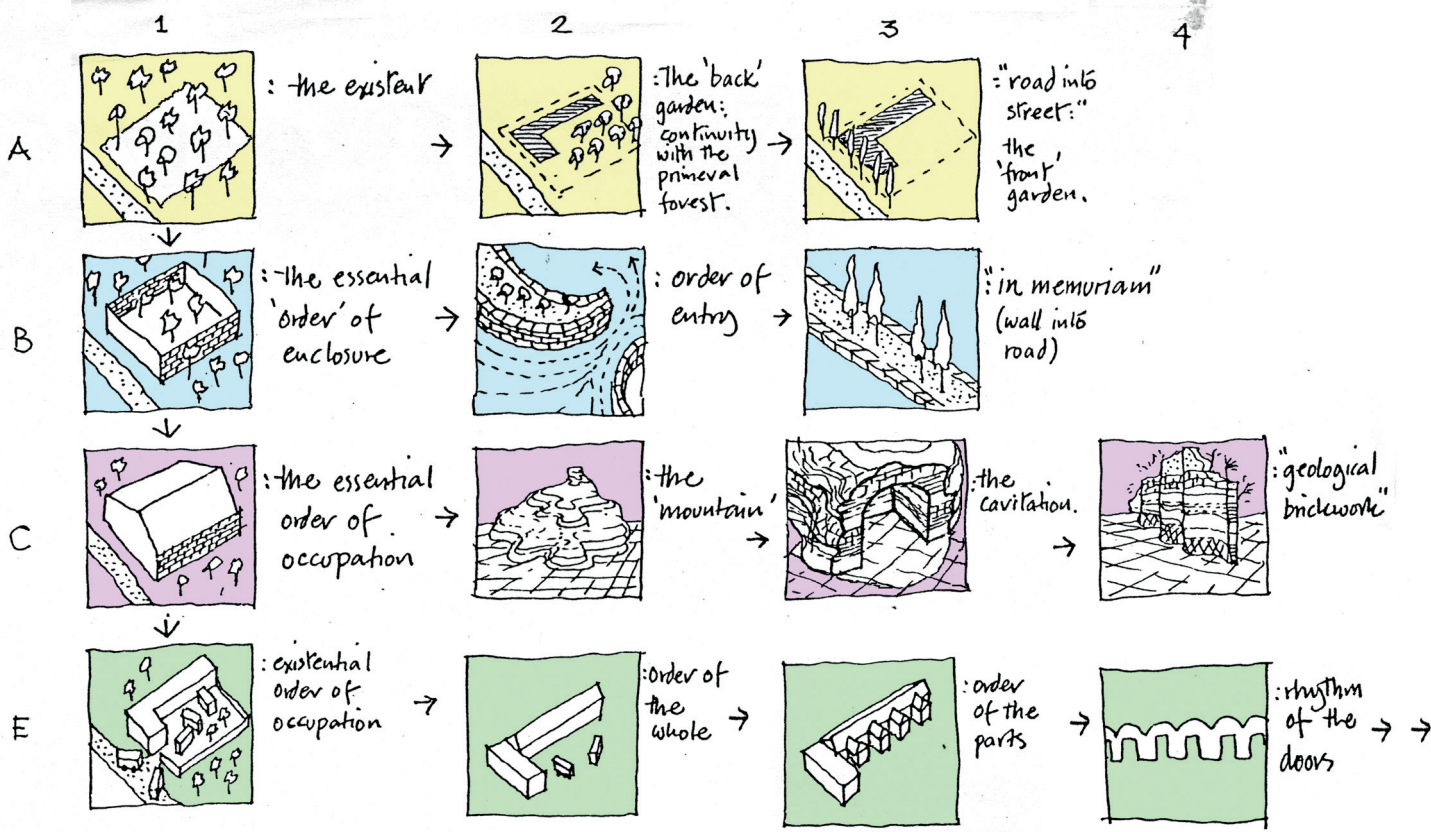 1
2
3
4
A
: the existent
:The 'back'
garden:
continuity
with the
primeval
forest.
:"road into
street:"
the
'front'
garden.
B
: the essential
'order' of
enclosure
: order of
entry
:"in memuriam"
(wall into
road)
C
: the essential
order of
occupation
:the
'mountain'
:the
cavitation.
:"geological
brickwork"
E
: existential
order of
occupation
:order of
the
whole
:order
of the
parts
:rhythm
of the
doors